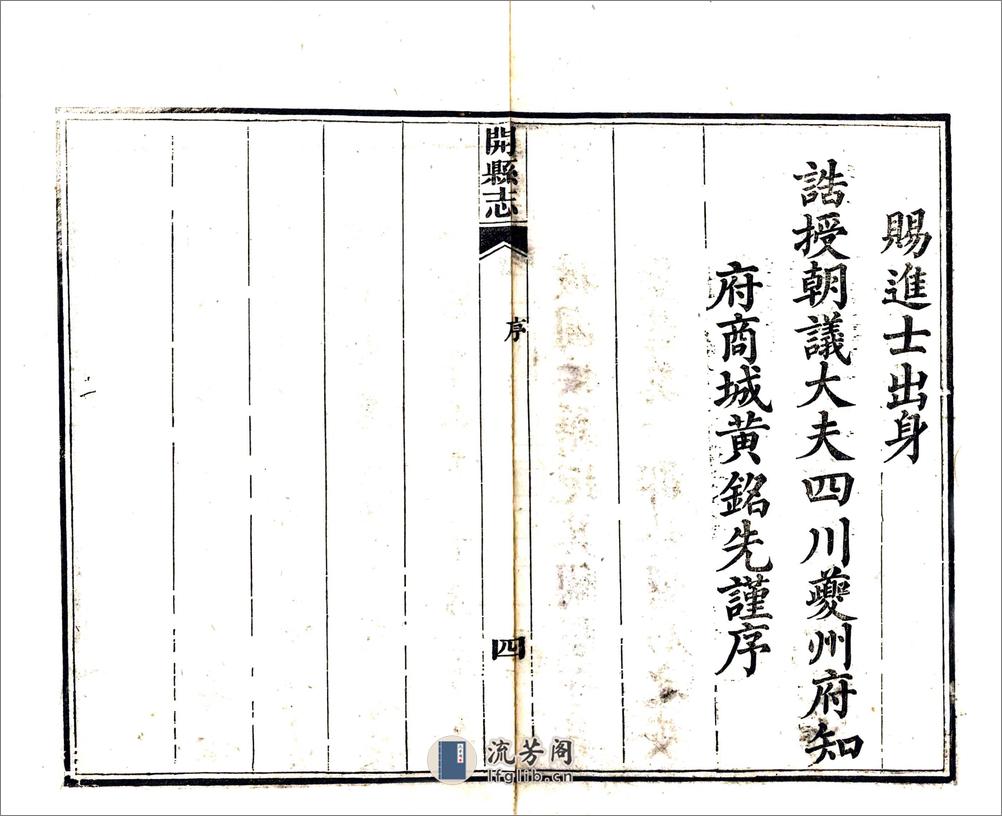 賜進士出身
誥授朝議大夫四川夔州府知
府商城黄銘先謹序
開縣志
序
四
流芳阁
lfglib.cn